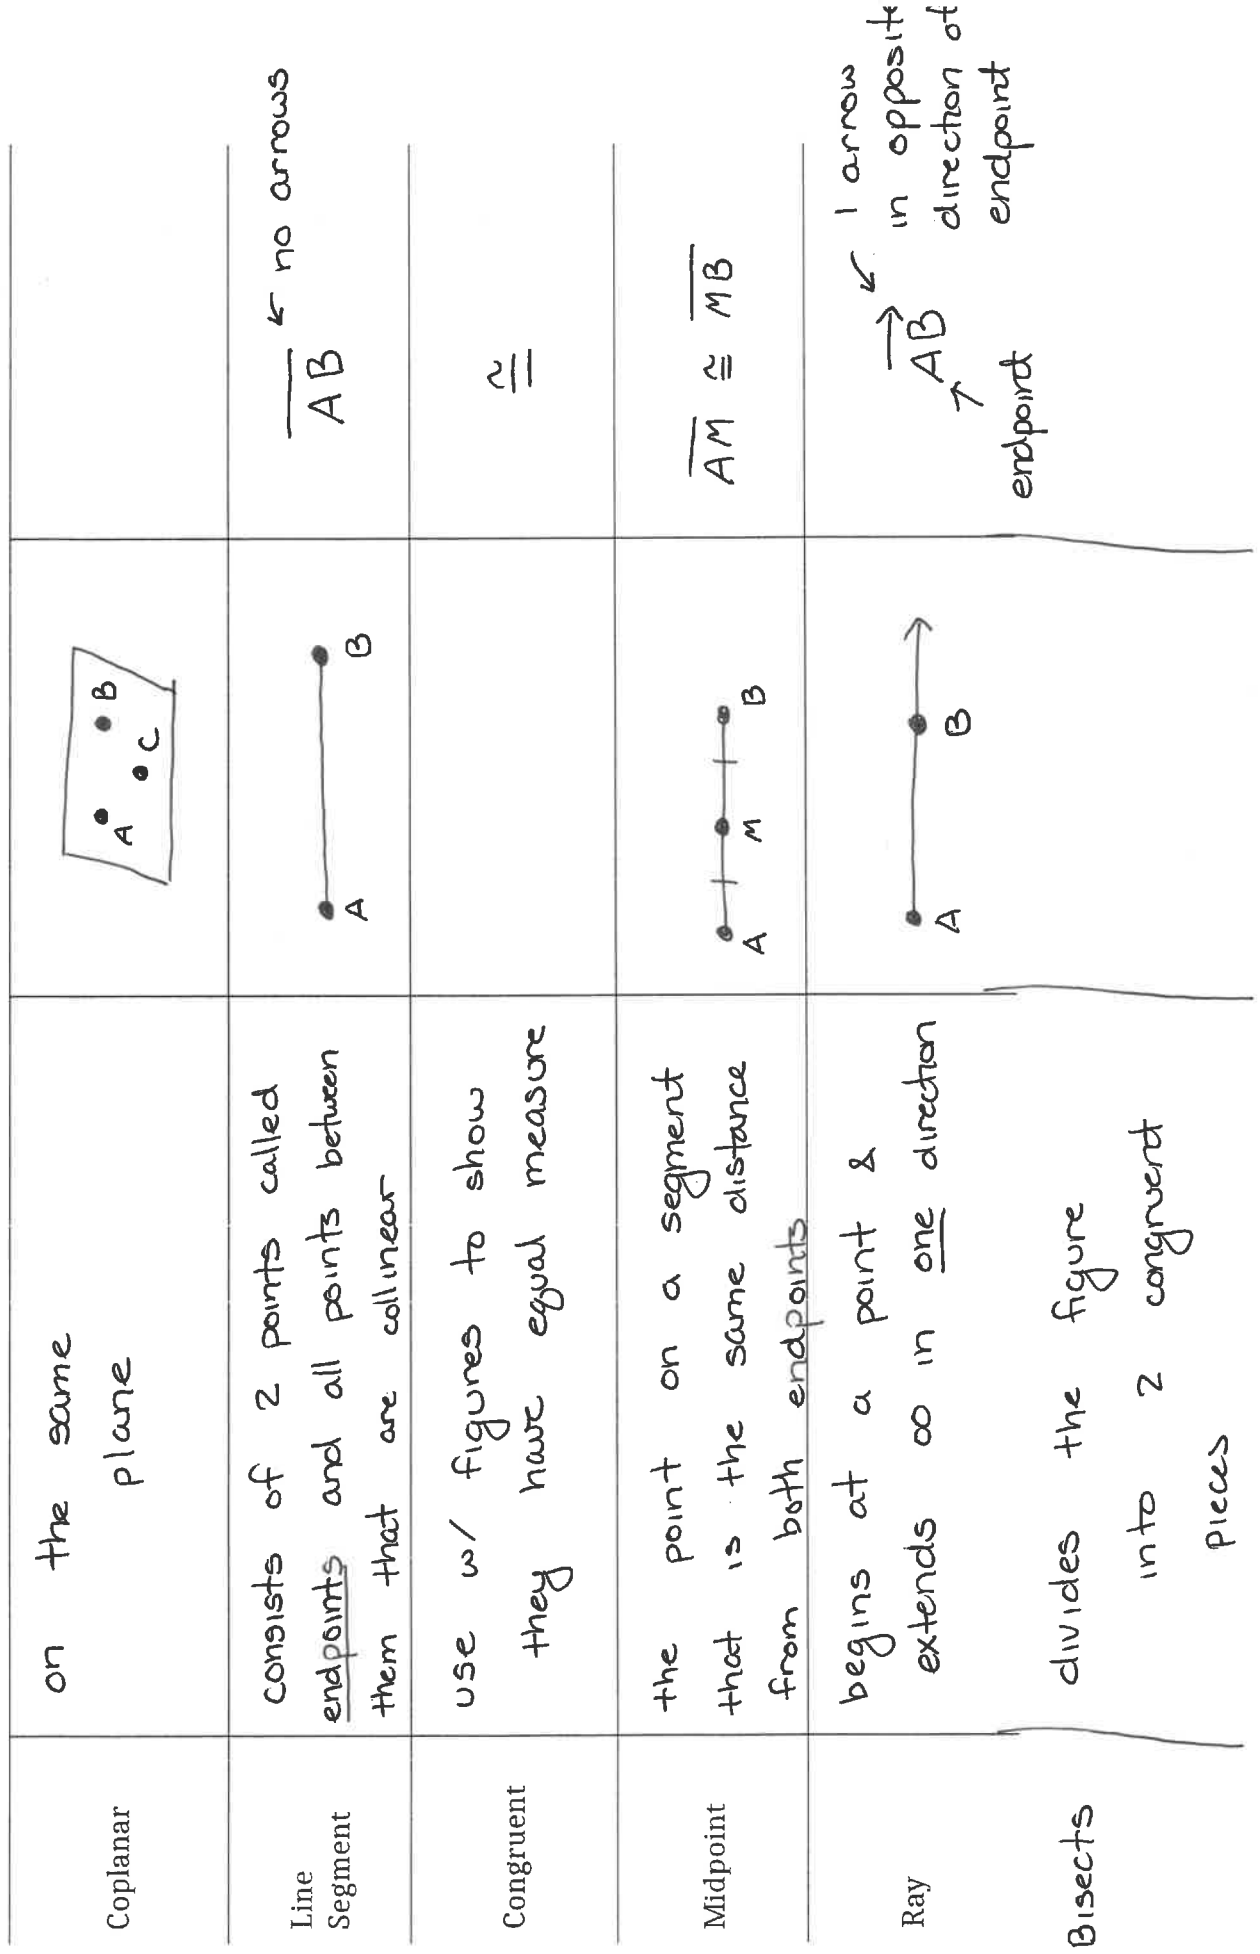 Coplanar
on the same
plane
A
B
C
Line
Segment
consists of 2 points called
endpoints and all points between
them that are collinear
A
B
AB ← no arrows
Congruent
use w/ figures to show
they have equal measure
≅
Midpoint
the point on a segment
that is the same distance
from both endpoints
A
M
B
AM ≅ MB
Ray
begins at a point &
extends ∞ in one direction
A
B
AB
endpoint
1 arrow
in opposite
direction of
endpoint
Bisects
divides the figure
into 2 congruent
pieces